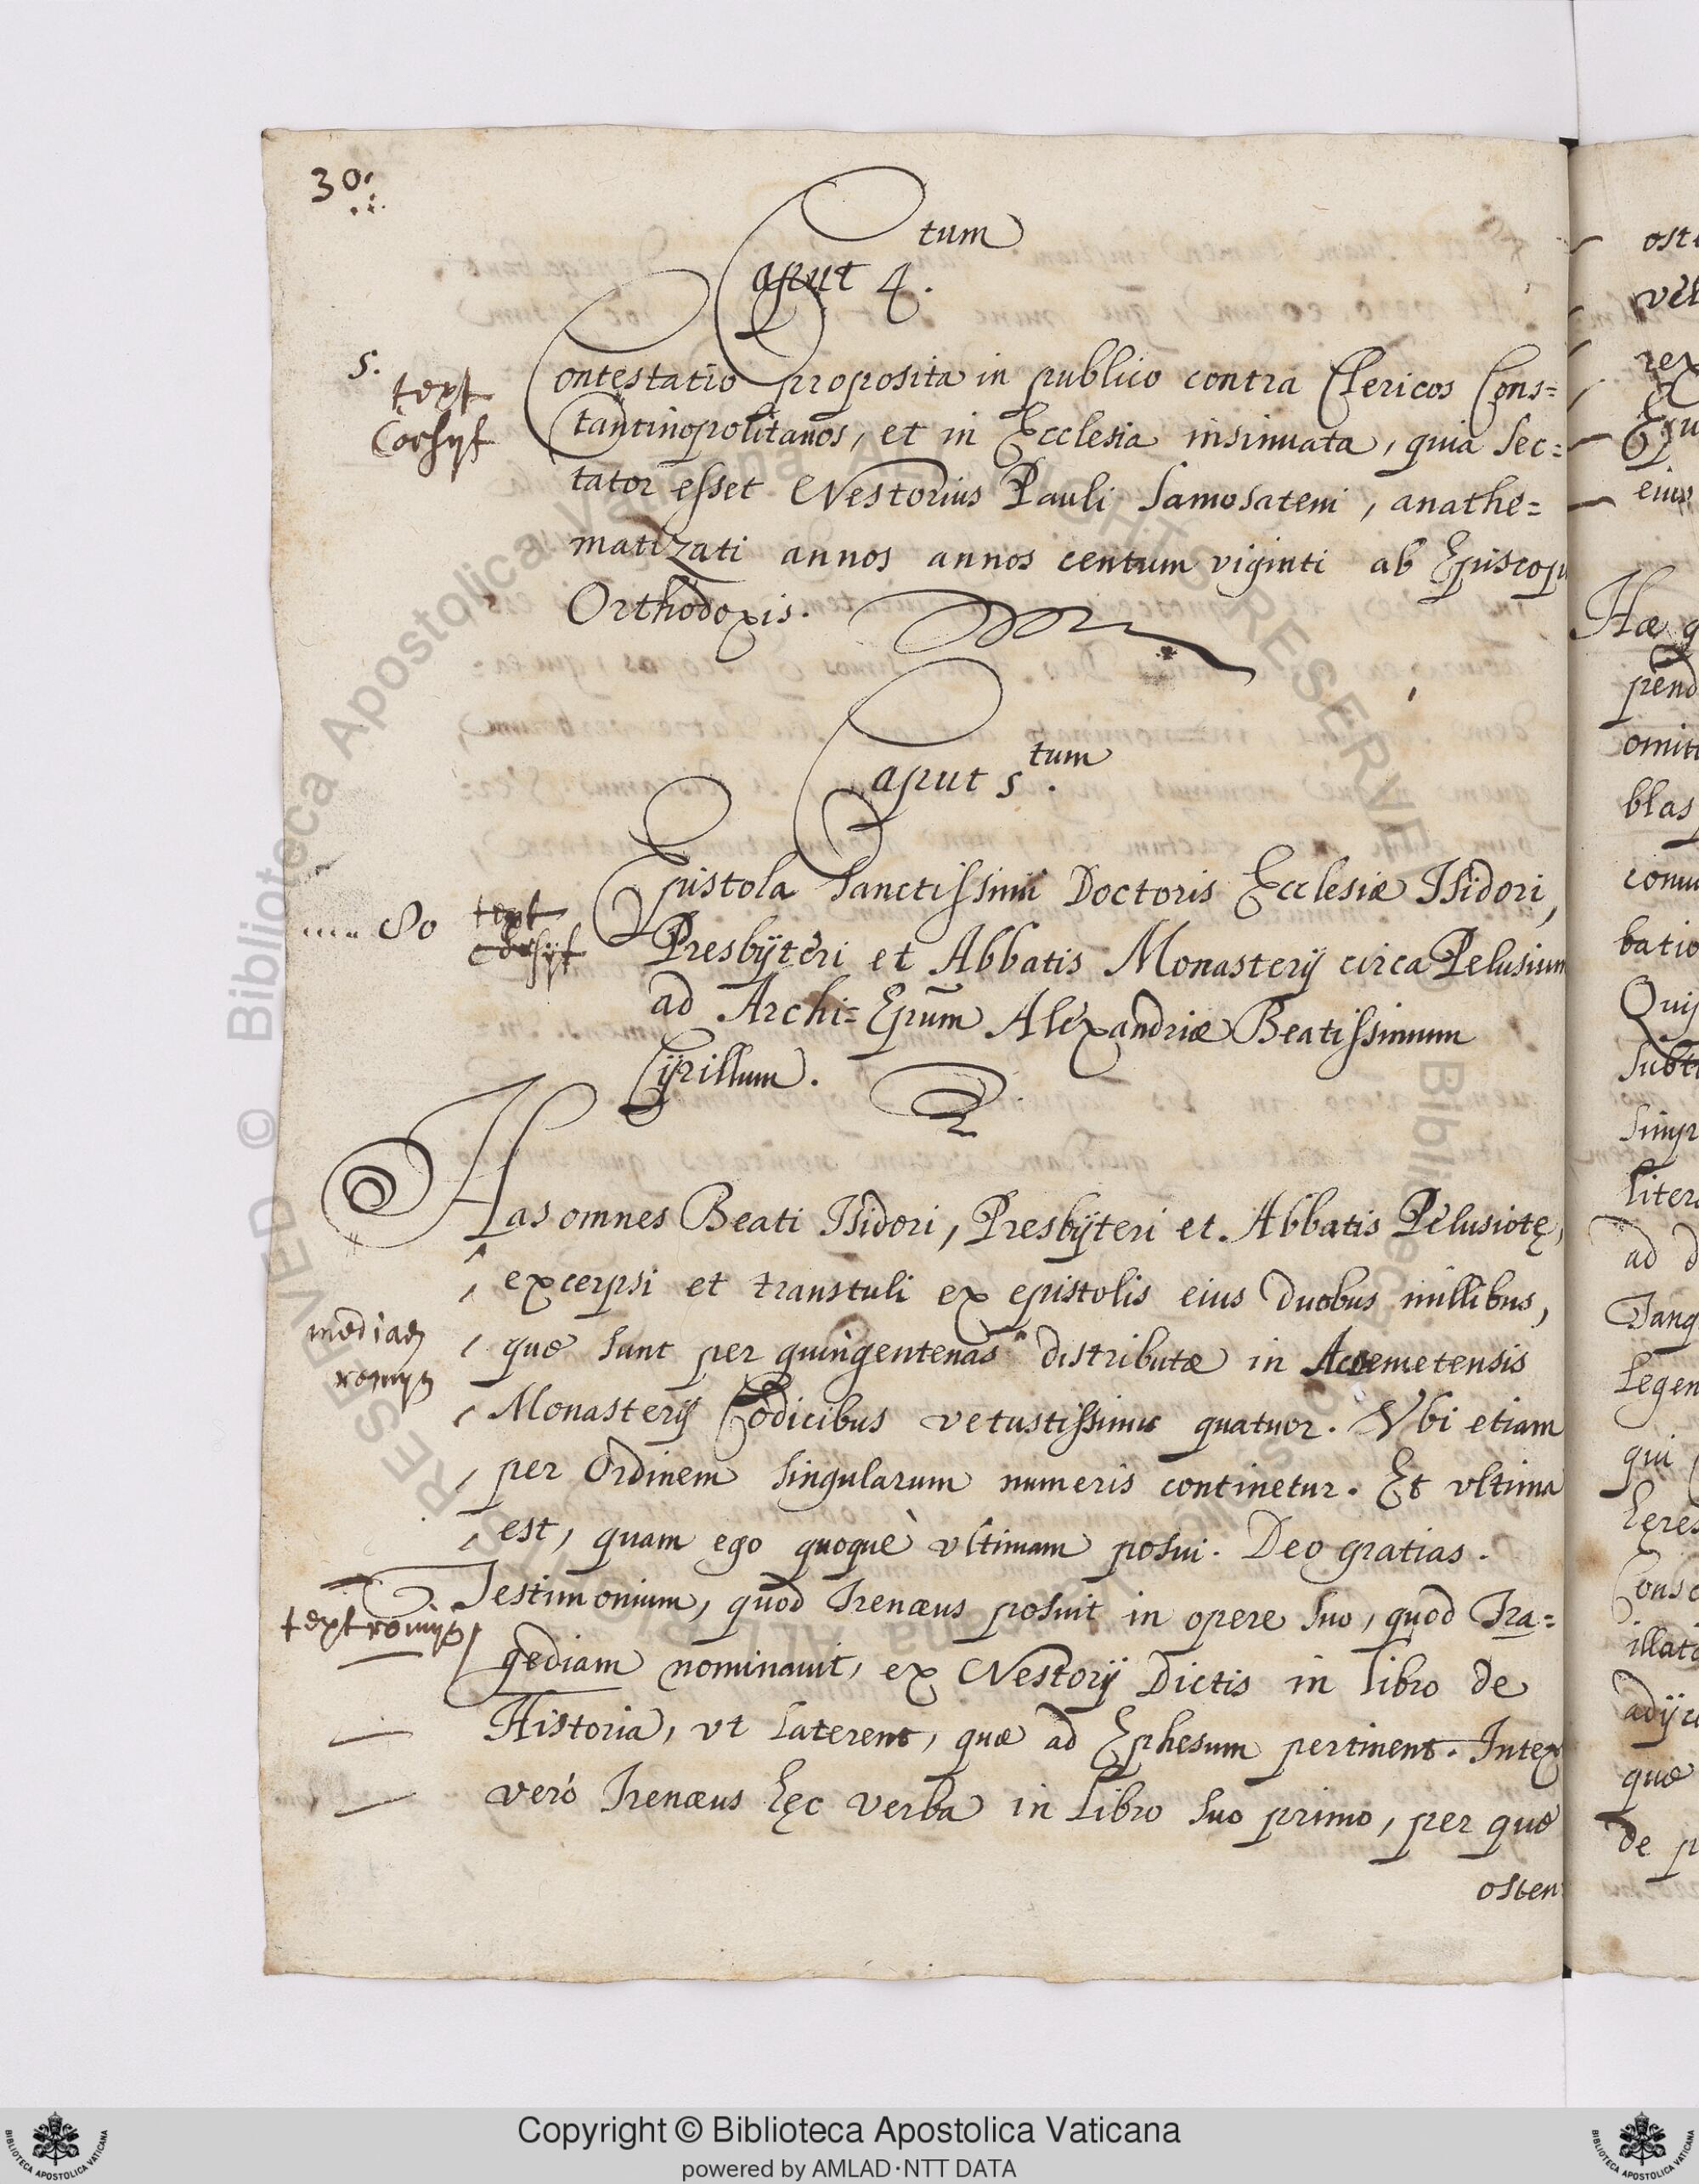 30.
Caput 4.tum
5.
text
Corsyf
Contestatio proposita in publico contra Clericos Cons=
tantinopolitanos, et in Ecclesia insinuata, quia Sec=
tator esset Nestorius Pauli Samosateni, anathe=
matizati annos annos centum viginti ab Episcop
Orthodoxis.
Caput 5.tum
80
text
Corsyf
Epistola Sanctissimi Doctoris Ecclesiæ Isidori,
Presbÿteri et Abbatis Monasterij circa Pelusium
ad Archi=Epũm Alexandriæ Beatissimum
Cÿrillum.
Has omnes Beati Isidori, Presbÿteri et Abbatis Pelusiotę,
excerpsi et transtuli ex epistolis eius duobus millibus,
mediaę
romyn
quæ sunt per quingentenas distributæ in Acoemetensis
Monasterij Codicibus vetustissimis quatuor. Vbi etiam
per Ordinem singularum numeris continetur. Et vltima
est, quam ego quoquè vltimam posui. Deo gratias.
text romyn
Testimonium, quod Irenæus posuit in opere suo, quod Tra=
gediam nominauit, ex Nestorij Dictis in libro de
Historia, vt laterent, quæ ad Ephesum pertinent. Intex
verò Irenæus hęc verba in libro suo primo, per quæ
osten
Copyright © Biblioteca Apostolica Vaticana
powered by AMLAD·NTT DATA